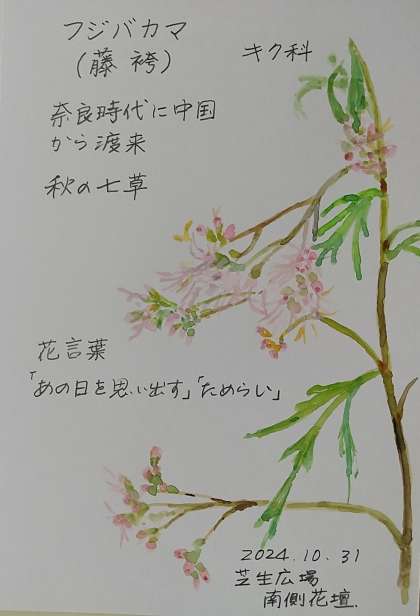 フジバカマ
(藤 袴)
キク科
奈良時代に中国
から渡来
秋の七草
花言葉
「あの日を思い出す」「ためらい」
2024.10.31
芝生広場
南側花壇.